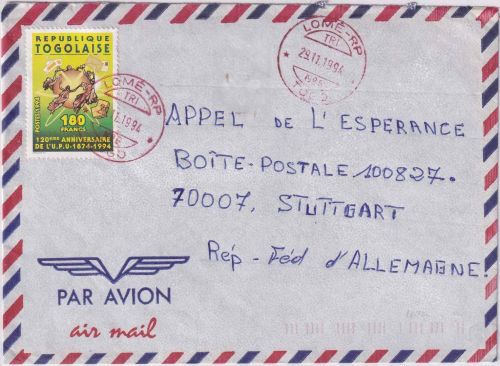 REPUBLIQUE
TOGOLAISE
POSTES 1994
180
FRANCS
120ème ANNIVERSAIRE
DE L'U.P.U-1874-1994
LOMÉ-RP
TRI
29.11.1994
TOGO
LOMÉ-RP
TRI
.11.1994
APPEL DE L'ESPERANCE
BOÎTE-POSTALE 100827.
70007, STUTTGART
Rép-Féd d'ALLEMAGNE.
PAR AVION
air mail